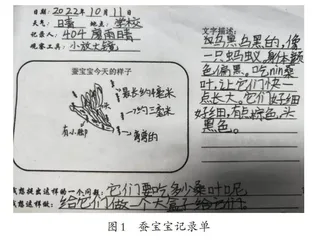 日期: 2022年10月11日
天气: 日晴 地点: 学校
记录人: 404 雨晴
观察工具: 小放大镜
蚕宝宝今天的样子
最长约4毫米
一只约3毫米
有小脚
文字描述:
乌黑乌黑的,像
一只蚂蚁。身体颜
色偏黑。吃nin桑
叶,让它们快一
点长大。它们好细
好细,有点棕色,头
黑色。
我想提出这样的一个问题: 它们要吃多少桑叶呢
我想这样做: 给它们做一个大盒子给它们
图1 蚕宝宝记录单